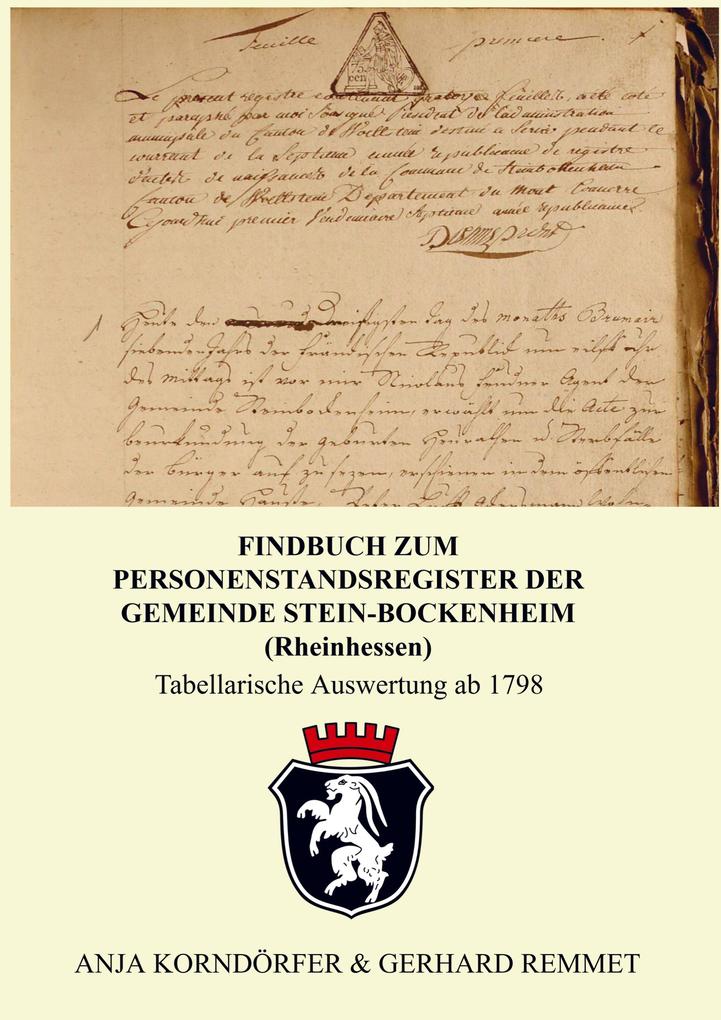 feuille première
75
cen
Le present registre contenant quatorze feuillets, a été coté
et paraphé par moi soussigné President de l'administration
municipale du Canton de Woellstein destiné a servir pendant le
courrant de la Septieme année republicaine de registre
d'actes de naissances de la Commune de Steinbockenheim
Canton de Woellstein Departement du Mont Tonnerre
Cejourd'hui premier Vendemiaire Septieme année republicaine
1
Heute den dreisigsten tag des monaths Brumair
siebenden Jahrs der fränckischen Republick um eilf uhr
des Mittags ist vor mir Nicolaus Agent der
Gemeinde Steinbockenheim, erwählt um die Acte zur
beurkundung der geburten Heurathen u. Sterbfälle
der bürger auf zu sezen, erschienen in dem öffentlichen
Gemeinde Hauße, Peter
FINDBUCH ZUM
PERSONENSTANDSREGISTER DER
GEMEINDE STEIN-BOCKENHEIM
(Rheinhessen)
Tabellarische Auswertung ab 1798
ANJA KORNDÖRFER & GERHARD REMMET